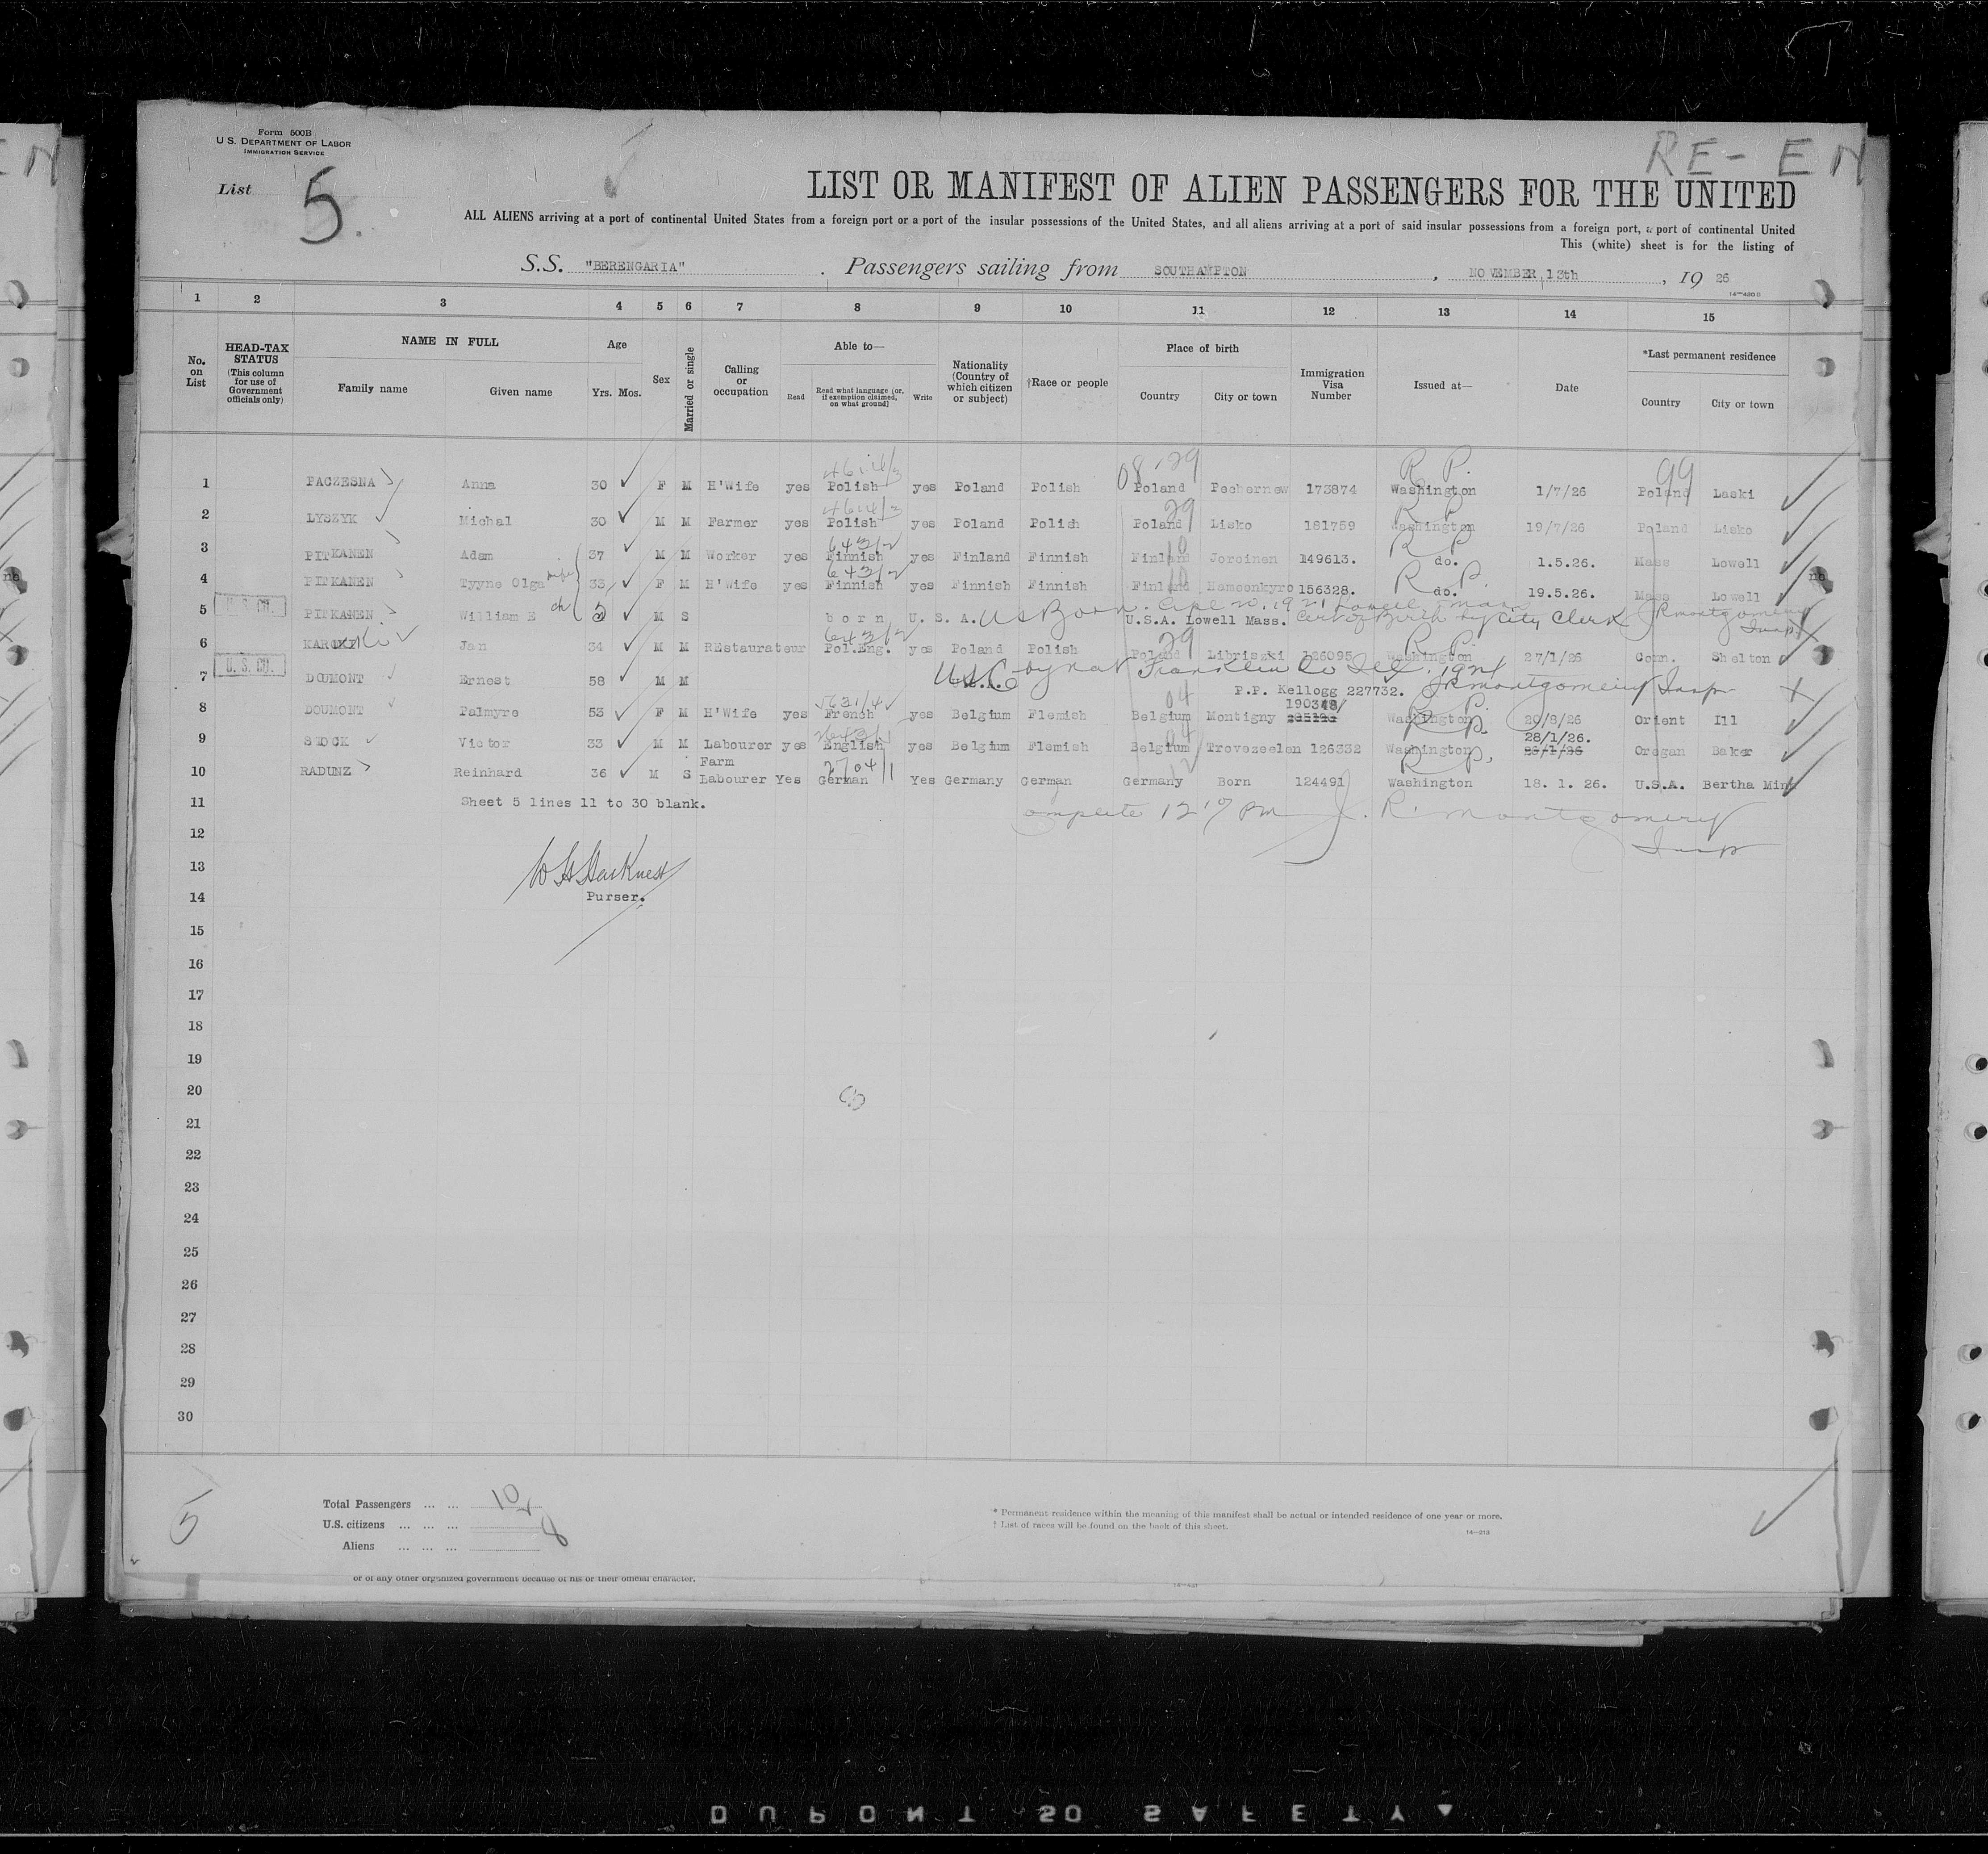 RE- EN
Form 500B
U.S. DEPARTMENT OF LABOR
IMMIGRATION SERVICE
List 5.
LIST OR MANIFEST OF ALIEN PASSENGERS FOR THE UNITED
ALL ALIENS arriving at a port of continental United States from a foreign port or a port of the insular possessions of the United States, and all aliens arriving at a port of said insular possessions from a foreign port, a port of continental United
This (white) sheet is for the listing of
S.S. "BERENGARIA" . Passengers sailing from SOUTHAMPTON , NOVEMBER 13th , 19 26
14-430 B
1 2 3 4 5 6 7 8 9 10 11 12 13 14 15
No. on List
HEAD-TAX STATUS (This column for use of Government officials only)
NAME IN FULL
Family name Given name
Age
Yrs. Mos.
Sex
Married or single
Calling or occupation
Able to—
Read Read what language (or, if exemption claimed, on what ground) Write
Nationality (Country of which citizen or subject)
†Race or people
Place of birth
Country City or town
Immigration Visa Number
Issued at—
Date
*Last permanent residence
Country City or town
1 PACZESNA Anna 30 F M H'Wife yes Polish yes Poland Polish Poland Pechernew 173874 Washington 1/7/26 Poland Laski
08 29 R.P. 99
2 LYSZYK Michal 30 M M Farmer yes Polish yes Poland Polish Poland Lisko 181759 Washington 19/7/26 Poland Lisko
29 R P
3 PITKANEN Adam 37 M M Worker yes Finnish yes Finland Finnish Finland Joroinen 149613. do. 1.5.26. Mass Lowell
643/2 R P
4 PITKANEN Tyyne Olga wife 33 F M H'Wife yes Finnish yes Finnish Finnish Finland Hameenkyro 156328. do. 19.5.26. Mass Lowell
643/2 R P.
U.S. CIT.
5 PITKANEN William E ch 5 M S born U. S. A. US Born. U.S.A. Lowell Mass. Cert of Birth by City Clerk JRMontgomery Insp.
6 Jan 34 M M REstaurateur Pol.Eng. yes Poland Polish Poland Libriszki 126095 Washington 27/1/26 Conn. Shelton
643/2 29 R.P.
U. S. CIT.
7 DOUMONT Ernest 58 M M USC by nat Franklin Co Ill. 1924
P.P. Kellogg 227732. JRMontgomery Insp
8 DOUMONT Palmyre 53 F M H'Wife yes French yes Belgium Flemish Belgium Montigny 190348/ Washington 20/8/26 Orient Ill
04 R P.
9 STOCK Victor 33 M M Labourer yes English yes Belgium Flemish Belgium Trovezeelen 126332 Washington 28/1/26. Oregan Baker
04 R P.
10 RADUNZ Reinhard 36 M S Farm Labourer Yes German Yes Germany German Germany Born 124491 Washington 18. 1. 26. U.S.A. Bertha Minn
12
11 Sheet 5 lines 11 to 30 blank.
omplete 12 PM J. R. Montgomery
Insp
12
13
W Harkness
14 Purser.
15
16
17
18
19
20
21
22
23
24
25
26
27
28
29
30
5
Total Passengers ... ... 10
U.S. citizens ... ... ... 2
Aliens ... ... ... 8
* Permanent residence within the meaning of this manifest shall be actual or intended residence of one year or more.
† List of races will be found on the back of this sheet.
14-213
or of any other organized government because of his or their official character.
DUPONT SO SAFETY